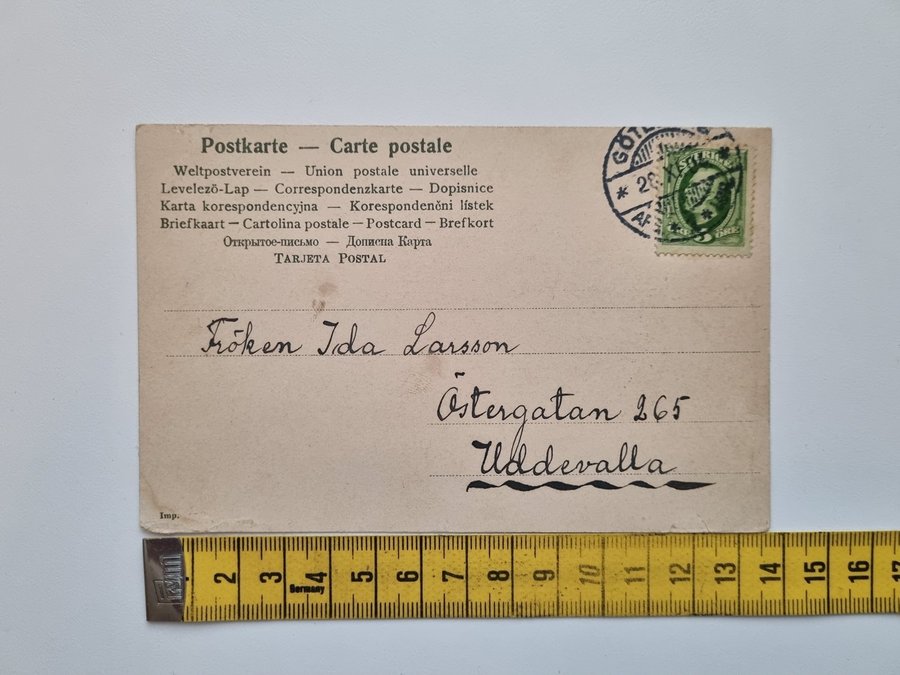 Postkarte — Carte postale
Weltpostverein — Union postale universelle
Levelező-Lap — Correspondenzkarte — Dopisnice
Karta korespondencyjna — Korespondenční lístek
Briefkaart — Cartolina postale — Postcard — Brefkort
Открытое-письмо — Дописна Карта
TARJETA POSTAL
Fröken Ida Larsson
Östergatan 265
Uddevalla
Imp.
2 3 4 5 6 7 8 9 10 11 12 13 14 15 16
Germany